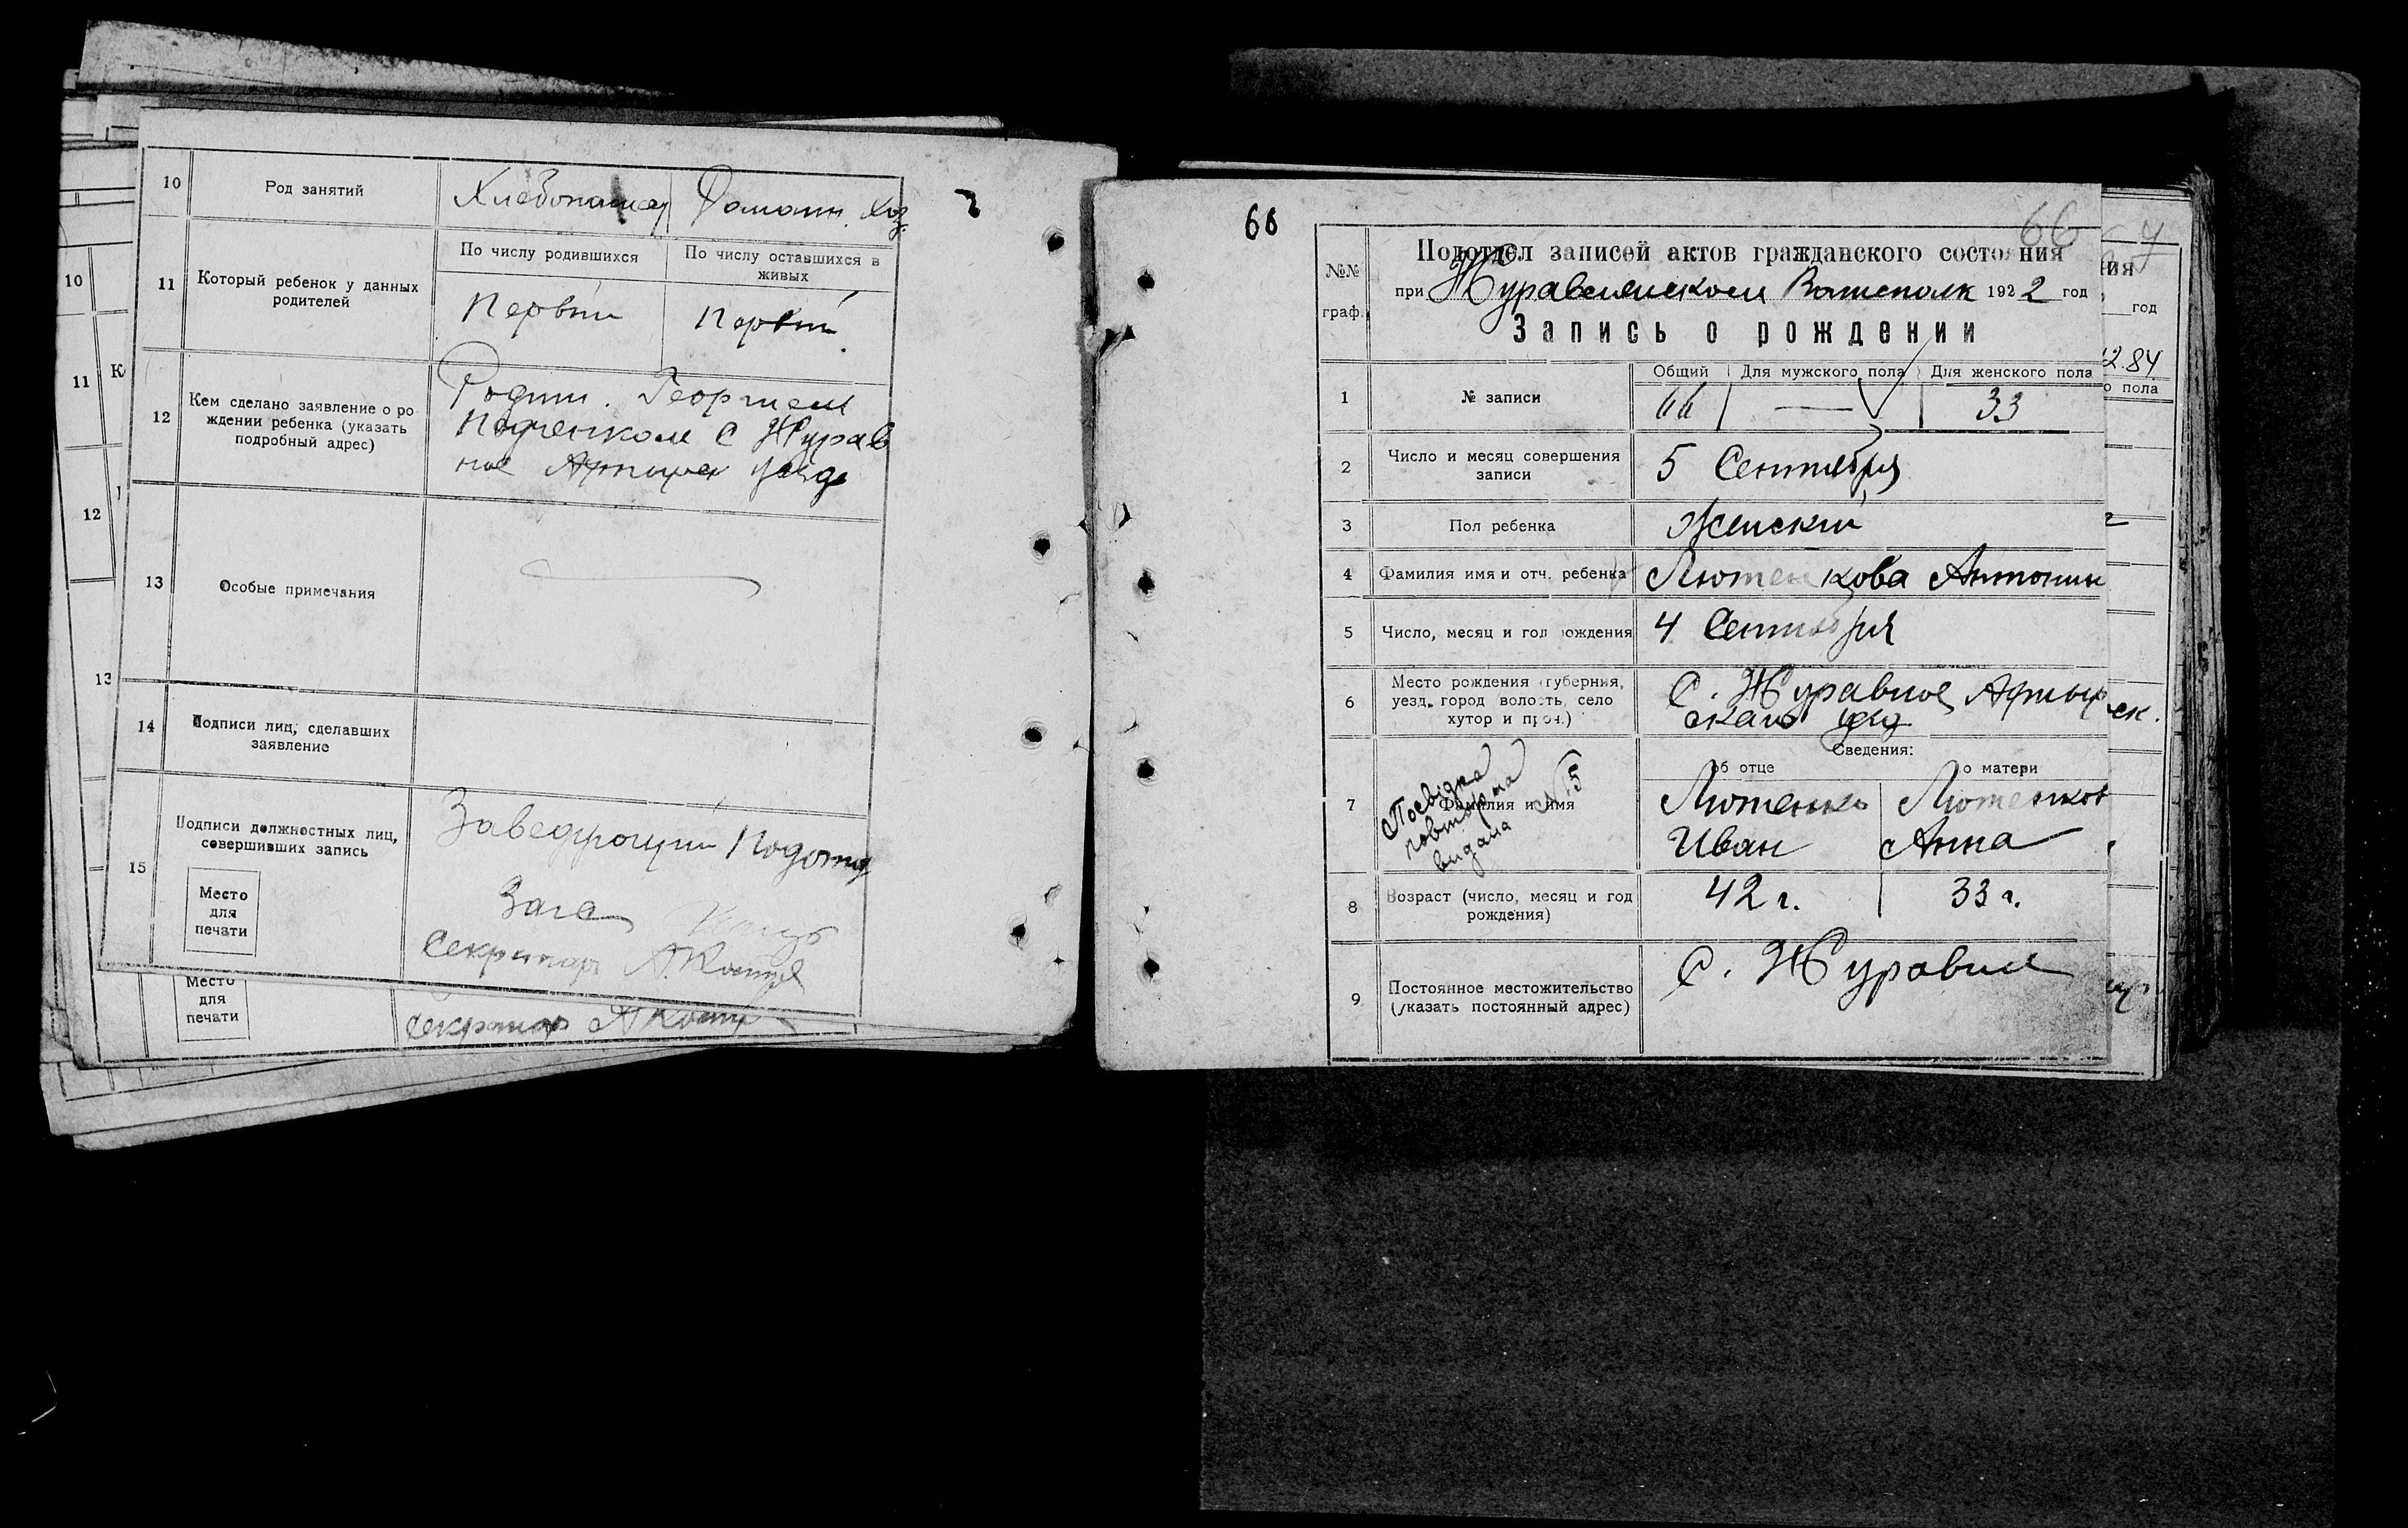 10 Род занятий Хлебопашец Домашн. Хоз.
11 Который ребенок у данных родителей
По числу родившихся По числу оставшихся в живых
Первый Первый
12 Кем сделано заявление о ро
ждении ребенка (указать
подробный адрес)
Родит. Георгием
С Журав
ное Ахтырск уезда
13 Особые примечания
14 Подписи лиц, сделавших
заявление
15 Подписи должностных лиц,
совершивших запись
Место
для
печати
Заведующий Подотд
Загса
Секретарь
10
11 К
12
13
Место
для
печати
Секретарь
66
66
№№
граф.
Подотдел записей актов гражданского состояния
при Журавлянском Волисполк 1922 год
Запись о рождении
Общий Для мужского пола Для женского пола
1 № записи 66 — 33
2 Число и месяц совершения
записи
5 Сентября
3 Пол ребенка Женский
4 Фамилия имя и отч. ребенка Лютенкова Антонин
5 Число, месяц и год рождения 4 Сентября
6 Место рождения (губерния,
уезд, город волость, село
хутор и проч.)
С. Журавное Ахтыр
ского уезд
Сведения:
об отце о матери
7 Фамилия и имя
Посвідка
повторна
видана №15
Лютенко Лютенков
Иван Анна
8 Возраст (число, месяц и год
рождения)
42 г. 33 г.
9 Постоянное местожительство
(указать постоянный адрес)
С. Журавне
ия
год
12.84
о пола
ск.